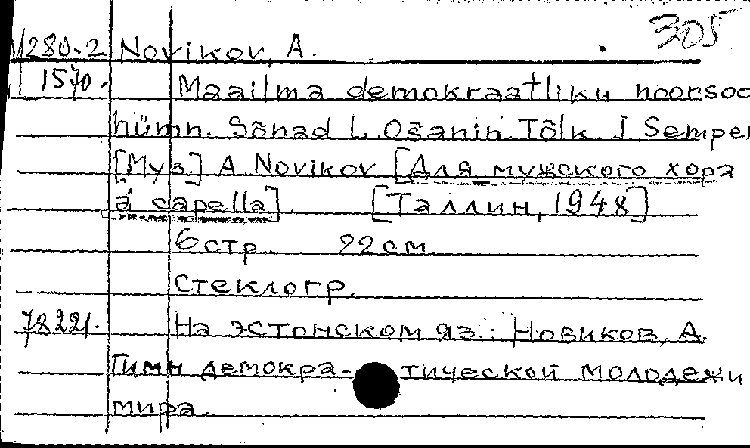 305
M280-2 Novikov, A.
1570. Maailma demokraatliku noorsoo
hümn. Sõnad L. Ošanin. Tõlk. J. Semper
[Муз.] A. Novikov [Для мужского хора
á capella] [Таллин, 1948]
6 стр. 22 см.
Стеклогр.
78221. На эстонском яз.: Новиков, А.
Гимн демократической молодежи
мира.